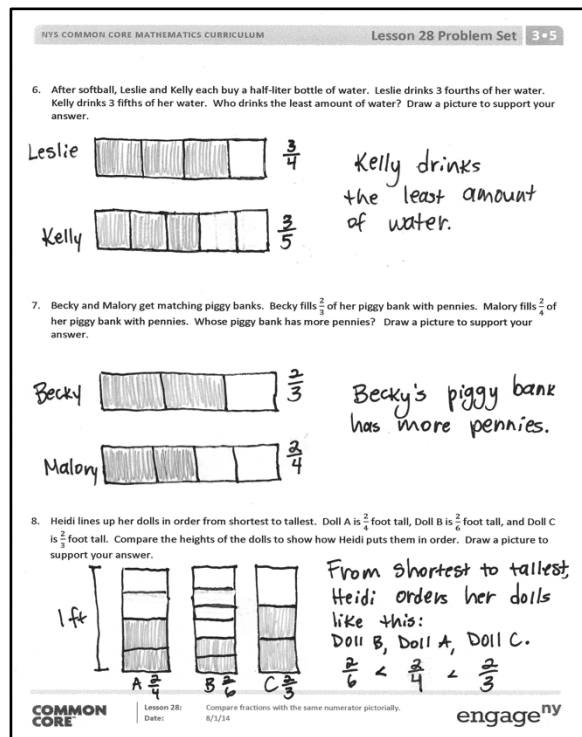 NYS COMMON CORE MATHEMATICS CURRICULUM
Lesson 28 Problem Set
3•5
6. After softball, Leslie and Kelly each buy a half-liter bottle of water. Leslie drinks 3 fourths of her water.
Kelly drinks 3 fifths of her water. Who drinks the least amount of water? Draw a picture to support your
answer.
Leslie
3/4
Kelly drinks
the least amount
of water.
Kelly
3/5
7. Becky and Malory get matching piggy banks. Becky fills 2/3 of her piggy bank with pennies. Malory fills 2/4 of
her piggy bank with pennies. Whose piggy bank has more pennies? Draw a picture to support your
answer.
Becky
2/3
Becky's piggy bank
has more pennies.
Malory
2/4
8. Heidi lines up her dolls in order from shortest to tallest. Doll A is 2/4 foot tall, Doll B is 2/6 foot tall, and Doll C
is 2/3 foot tall. Compare the heights of the dolls to show how Heidi puts them in order. Draw a picture to
support your answer.
1 ft
A 2/4
B 2/6
C 2/3
From shortest to tallest,
Heidi orders her dolls
like this:
Doll B, Doll A, Doll C.
2/6 < 2/4 < 2/3
COMMON
CORE
Lesson 28: Compare fractions with the same numerator pictorially.
Date: 8/1/14
engage ny